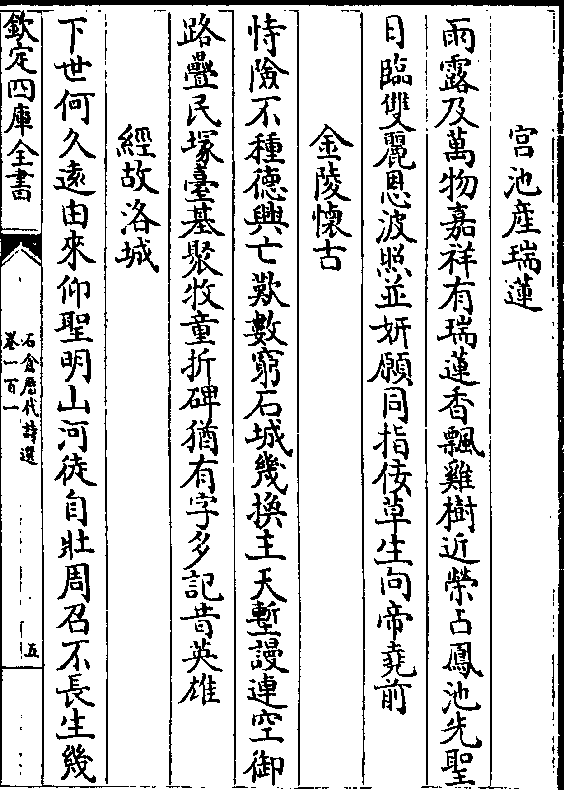 宮池產瑞蓮
雨露及萬物嘉祥有瑞蓮香飄雞樹近榮占鳳池先聖
日臨雙麗恩波照並妍願同指佞草生向帝堯前
金陵懷古
恃險不種德興亡歎數窮石城幾換主天塹謾連空御
路疊民塚臺基聚牧童折碑猶有字多記昔英雄
經故洛城
下世何久遠由來仰聖明山河徒自壯周召不長生幾
欽定四庫全書
石倉歷代詩選
卷一百一
五